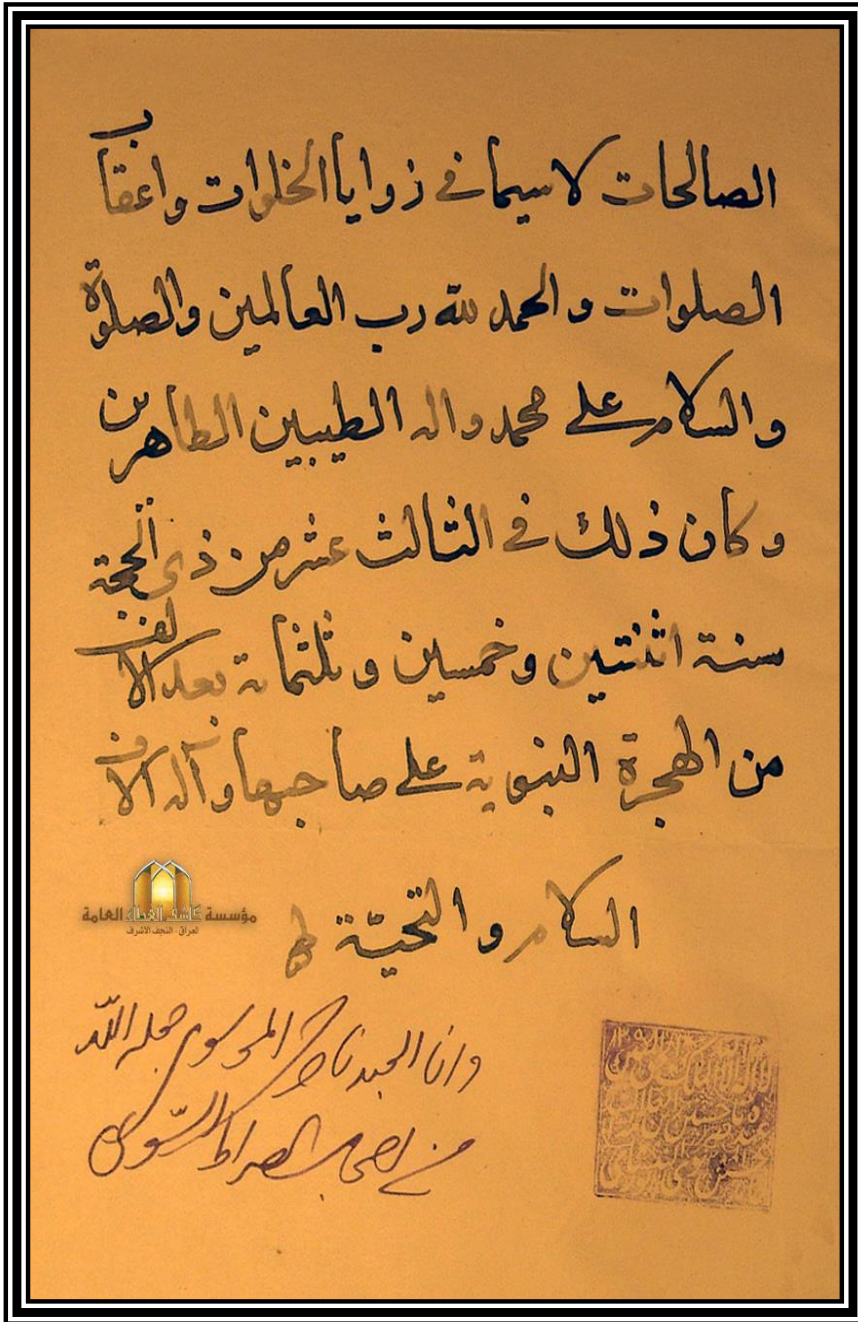 الصالحات لاسيما في زوايا الخلوات واعقاب
الصلوات والحمد لله رب العالمين والصلوة
والسلام على محمد واله الطيبين الطاهرين
وكان ذلك في الثالث عشر من ذي الحجة
سنة اثنتين وخمسين وثلثماية بعد الالف
من الهجرة النبوية على صاحبها وآله آلاف
السلام والتحية
مؤسسة كاشف الغطاء العامة
العراق - النجف الاشرف
وانا العبد ناصر الموسوي جعله الله
من اصحاب الصراط السوي